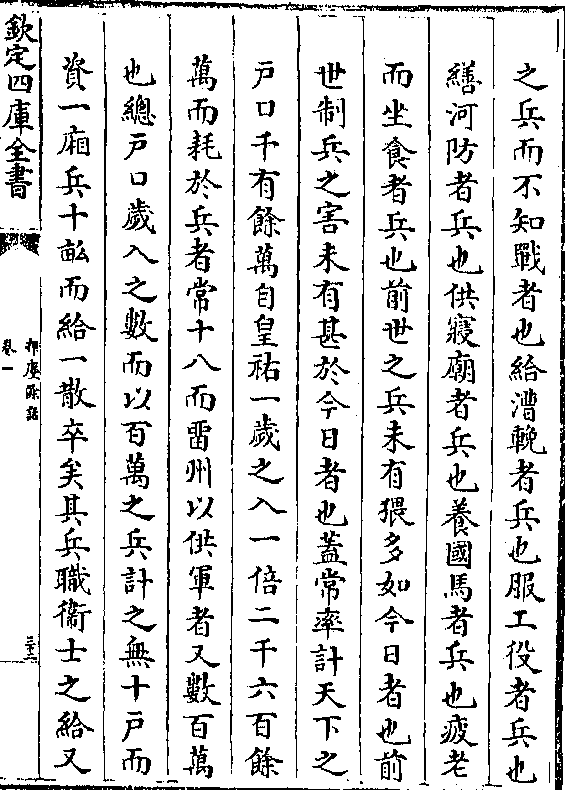 之兵而不知戰者也給漕輓者兵也服工役者兵也
繕河防者兵也供寢廟者兵也養國馬者兵也疲老
而坐食者兵也前世之兵未有猥多如今日者也前
世制兵之害未有甚於今日者也蓋常率計天下之
戸口千有餘萬自皇祐一歲之入一倍二千六百餘
萬而耗於兵者常十八而畱州以供軍者又數百萬
也總戸口歲入之數而以百萬之兵計之無十戸而
資一廂兵十畝而給一散卒矣其兵職衞士之給又
欽定四庫全書
揮麈餘話
卷一